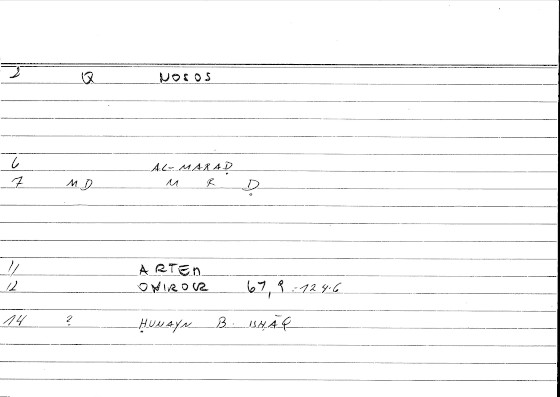 2 Q NOSOS
6 AL-MARAḌ
7 MD M R Ḍ
11 ARTEM
12 ONIROCR 67,9 -124.6
14 ? ḤUNAYN B. ISḤĀQ